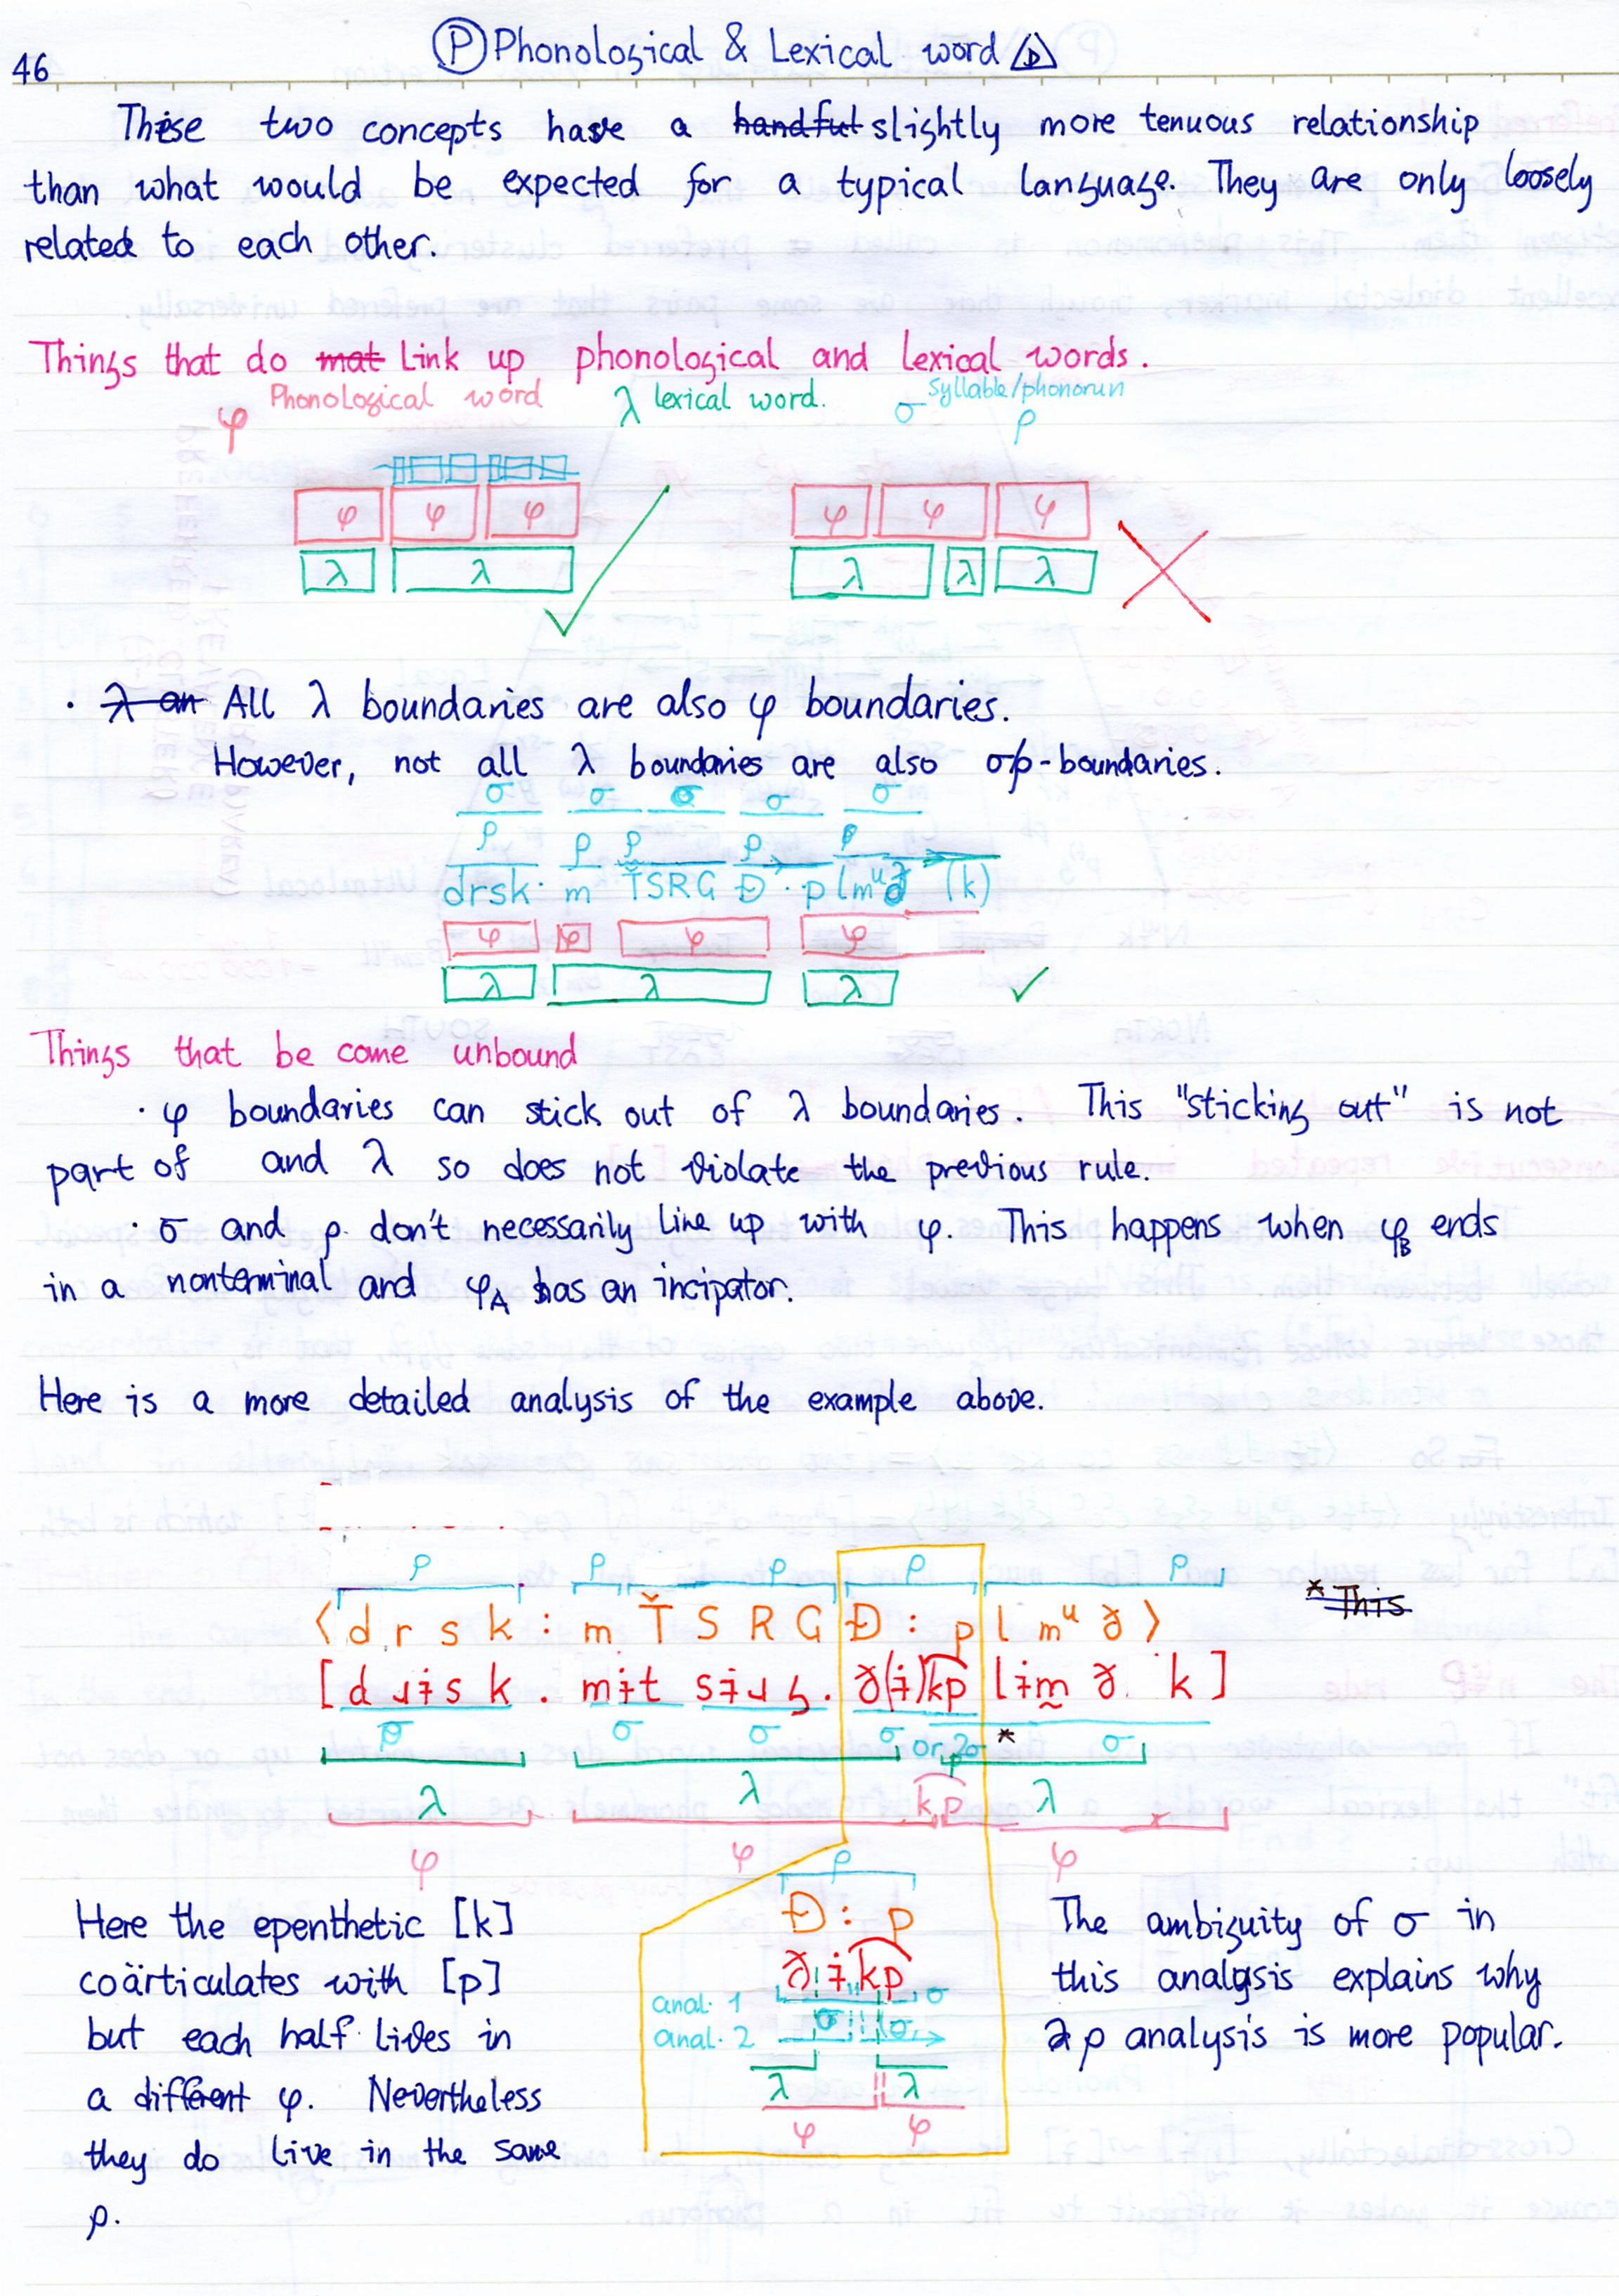 46
Ⓟ Phonological & Lexical word
These two concepts have a handful slightly more tenuous relationship
than what would be expected for a typical language. They are only loosely
related to each other.
Things that do mat Link up phonological and lexical words.
φ Phonological word λ lexical word. σ Syllable/phonorun ρ
φ φ φ φ φ φ
λ λ λ λ λ
· λ an All λ boundaries are also φ boundaries.
However, not all λ boundaries are also σ/ρ-boundaries.
σ σ σ σ σ
ρ ρ ρ ρ ρ
drsk· m ŤSRG Đ · p lmᵘð (k)
φ φ φ φ
λ λ λ
Things that be come unbound
· φ boundaries can stick out of λ boundaries. This "sticking out" is not
part of and λ so does not violate the previous rule.
· σ and ρ don't necessarily line up with φ. This happens when φB ends
in a nonterminal and φA has an incipator.
Here is a more detailed analysis of the example above.
ρ ρ ρ ρ ρ
⟨ d r s k : m Ť S R G Đ : p l mᵘ ð ⟩
* This
[ d ɹɨ s k . mɨt sɨɹ ɢ. ð(ɨ)k͡p lɨm̰ ð. k ]
σ σ σ σ or 2σ * σ
λ λ k͡p λ
φ φ φ
Here the epenthetic [k]
coärticulates with [p]
but each half lives in
a different φ. Nevertheless
they do live in the same
ρ.
ρ
Đ : p
ðɨk͡p
anal. 1 σ
anal. 2 σ σ
λ λ
φ φ
The ambiguity of σ in
this analysis explains why
ρ analysis is more popular.